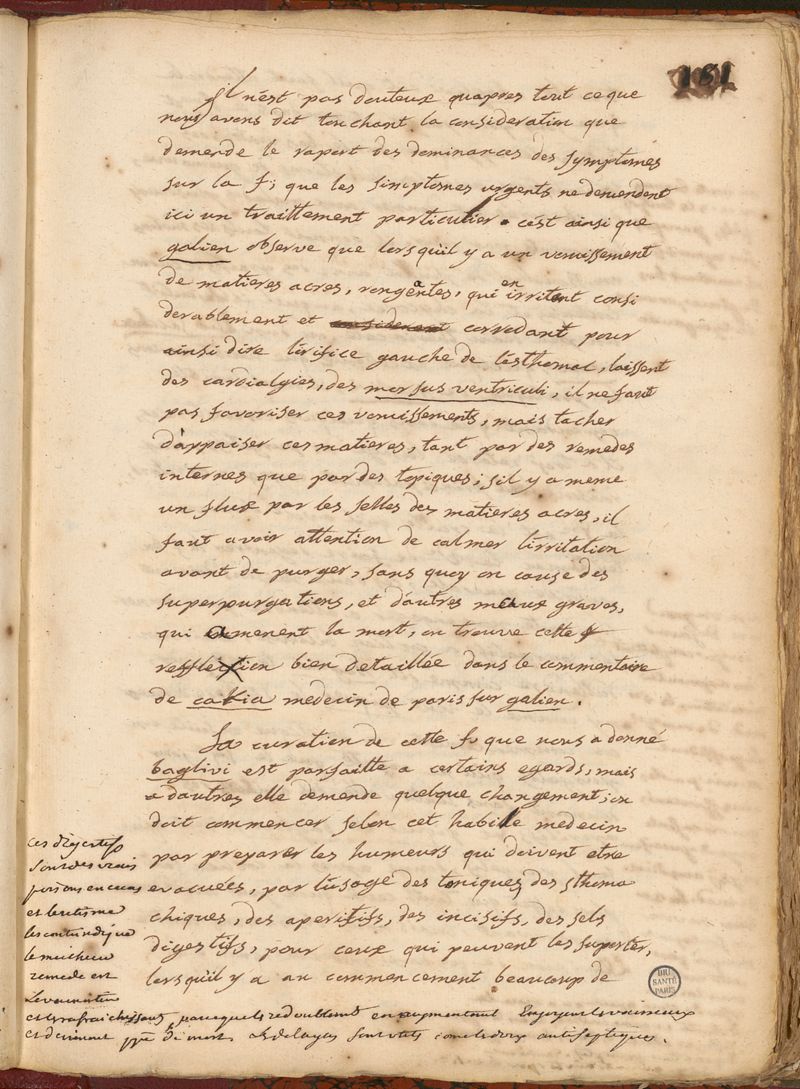 181
il n'est pas douteux quapres tout ce que
nous avons dit touchant la consideration que
demende le raport des dominances des symptomes
sur la f; que les simptomes urgents ne demendent
ici un traittement particulier. c'est ainsi que
galien observe que lorsquil y a un vomissement
de matieres acres, rongeantes, qui en irritent consi
derablement et corrodant pour
ainsi dire l'orifice gauche de l'esthomac, laissent
des cardialgies, des morsus ventriculi, il ne faut
pas favoriser ces vomissements, mais tacher
d'appaiser ces matieres, tant par des remedes
internes que par des topiques; s'il y a meme
un flux par les selles des matieres acres, il
faut avoir attention de calmer l'irritation
avant de purger, sans quoy on cause des
superpurgations, et d'autres maux graves,
qui amenent la mort, on trouve cette
reffléction bien detaillée dans le commentaire
de cakia medecin de paris sur galien.
La curation de cette f. que nous a donné
baglivi est parfaitte a certains egards, mais
a d'autres elle demende quelque changement; on
doit commencer selon cet habile medecin
par preparer les humeurs qui doivent etre
evacuées, par l'usage des toniques, des sthoma
chiques, des aperitifs, des incisifs, des sels
digestifs, pour ceux qui peuvent les suporter,
lorsquil y a au commencement beaucoup de
ces digestifs
sont des vrais
poisons en ce cas
le meilleur
remede est
BIU
SANTÉ
PARIS